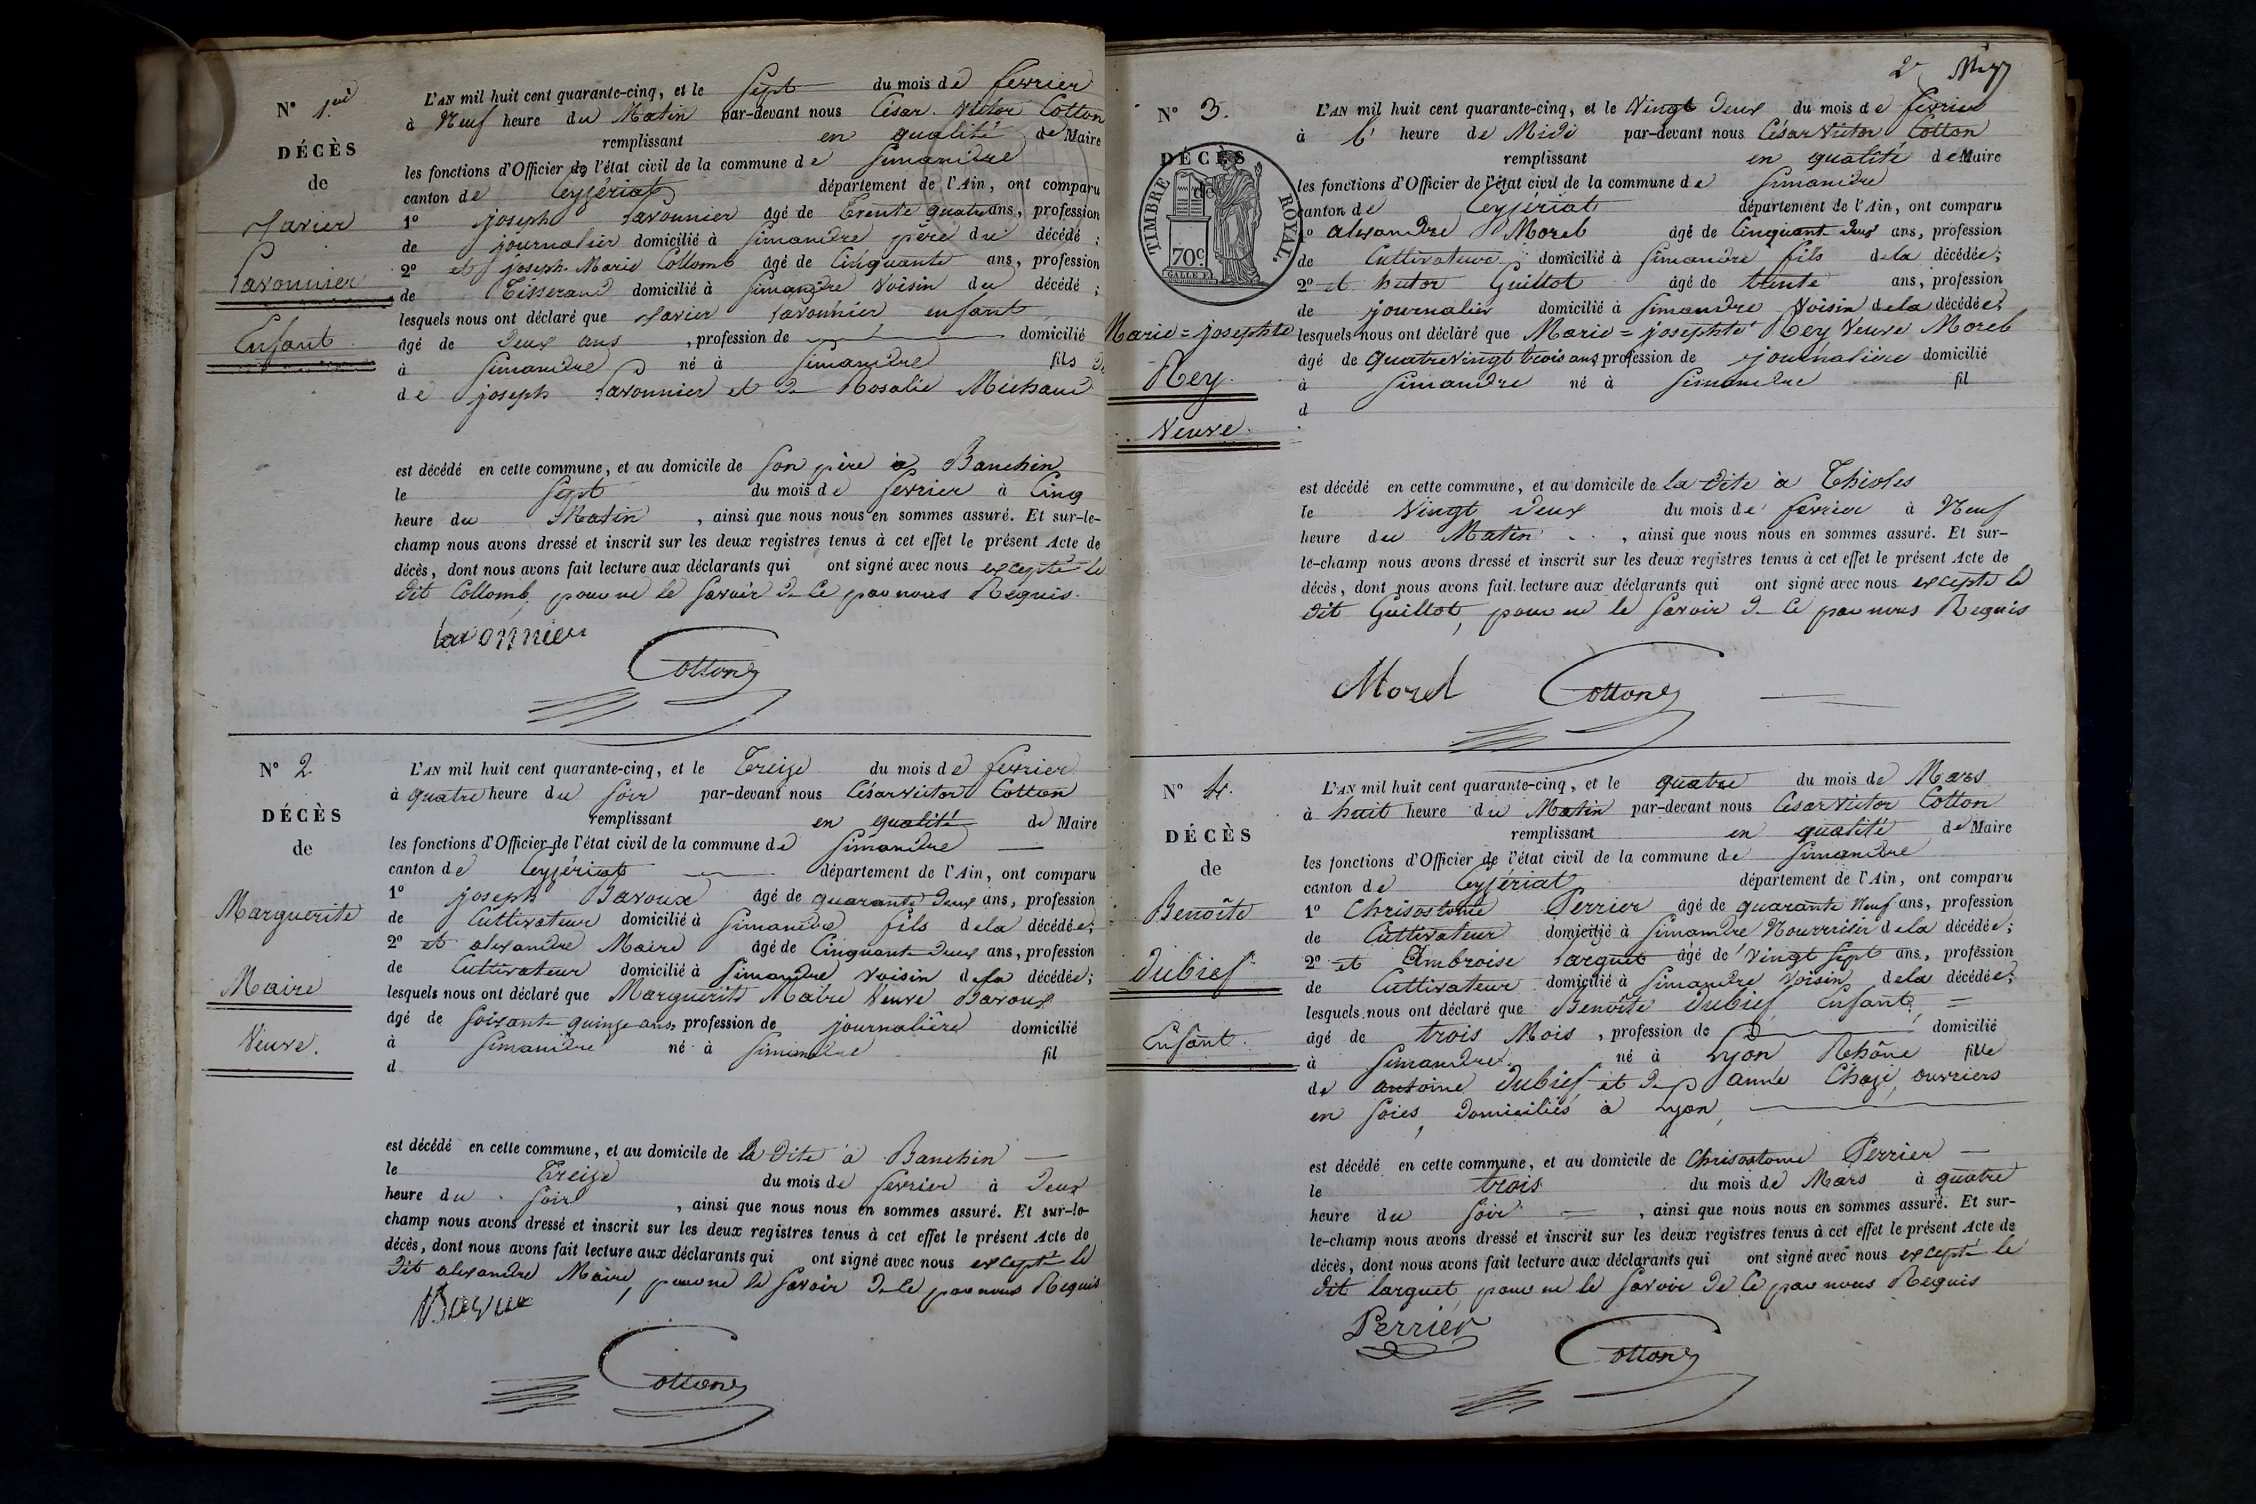 N° 1er
DÉCÈS
de
Xavier
Favonnier
Enfant
L'AN mil huit cent quarante-cinq, et le Sept du mois de fevrier
à Neuf heure du Matin par-devant nous César Victor Cotton
remplissant en qualité de Maire
les fonctions d'Officier de l'état civil de la commune de Simandre
canton de Ceyzériat département de l'Ain, ont comparu
1° joseph Favonnier âgé de Trente quatre ans, profession
de journalier domicilié à Simandre père du décédé ;
2° et joseph-Marie Collomb âgé de Cinquante ans, profession
de Tisserand domicilié à Simandre Voisin du décédé ;
lesquels nous ont déclaré que Xavier Favonnier enfant
âgé de Deux ans , profession de domicilié
à Simandre né à Simandre fils
de joseph Favonnier et de Rosalie Michaud
est décédé en cette commune, et au domicile de Son père à Banchin
le Sept du mois de fevrier à Cinq
heure du Matin , ainsi que nous nous en sommes assuré. Et sur-le-
champ nous avons dressé et inscrit sur les deux registres tenus à cet effet le présent Acte de
décès, dont nous avons fait lecture aux déclarants qui ont signé avec nous excepté le
Dit Collomb, pour ne le Savoir de Ce par nous Requis.
favonnier
Cotton
N° 2
DÉCÈS
de
Marguerite
Maire
Veuve.
L'AN mil huit cent quarante-cinq, et le Treize du mois de fevrier
à quatre heure du Soir par-devant nous César Victor Cotton
remplissant en qualité de Maire
les fonctions d'Officier de l'état civil de la commune de Simandre
canton de Ceyzériat département de l'Ain, ont comparu
1° joseph Bavoux âgé de quarante Deux ans, profession
de Cultivateur domicilié à Simandre fils de la décédée ;
2° et alexandre Maire âgé de Cinquante Deux ans, profession
de Cultivateur domicilié à Simandre Voisin de la décédée ;
lesquels nous ont déclaré que Marguerite Maire Veuve Bavoux
âgé de Soixante quinze ans, profession de journalière domicilié
à Simandre né à Simandre fil
d
est décédé en cette commune, et au domicile de la Dite à Banchin
le Treize du mois de fevrier à Deux
heure du Soir , ainsi que nous nous en sommes assuré. Et sur-le-
champ nous avons dressé et inscrit sur les deux registres tenus à cet effet le présent Acte de
décès, dont nous avons fait lecture aux déclarants qui ont signé avec nous excepté le
Dit alexandre Maire, pour ne le Savoir de Ce par nous Requis
Cotton
2e
N° 3.
DÉCÈS
de
TIMBRE ROYAL
70c
Marie=josephte
Rey.
Veuve.
L'AN mil huit cent quarante-cinq, et le Vingt Deux du mois de fevrier
à heure de Midi par-devant nous César Victor Cotton
remplissant en qualité de Maire
les fonctions d'Officier de l'état civil de la commune de Simandre
canton de Ceyzériat département de l'Ain, ont comparu
1° alexandre Morel âgé de Cinquante Deux ans, profession
de Cultivateur domicilié à Simandre fils de la décédée ;
2° et hector Guillot âgé de trente ans, profession
de journalier domicilié à Simandre Voisin de la décédée,
lesquels nous ont déclaré que Marie=josephte Rey Veuve Morel
âgé de quatre Vingt trois ans, profession de journalière domicilié
à Simandre né à Simandre fil
d
est décédé en cette commune, et au domicile de la Dite à Thioles
le Vingt Deux du mois de fevrier à Neuf
heure du Matin , ainsi que nous nous en sommes assuré. Et sur-
le-champ nous avons dressé et inscrit sur les deux registres tenus à cet effet le présent Acte de
décès, dont nous avons fait lecture aux déclarants qui ont signé avec nous excepte le
Dit Guillot, pour ne le Savoir de Ce par nous Requis
Morel Cotton
N° 4.
DÉCÈS
de
Benoîte
Dubief
Enfant.
L'AN mil huit cent quarante-cinq, et le quatre du mois de Mars
à huit heure du Matin par-devant nous César Victor Cotton
remplissant en qualité de Maire
les fonctions d'Officier de l'état civil de la commune de Simandre
canton de Ceyzériat département de l'Ain, ont comparu
1° Chrisostome Perrier âgé de quarante Neuf ans, profession
de Cultivateur domicilié à Simandre Nourrisier de la décédée ;
2° et Ambroise Larguet âgé de Vingt Sept ans, profession
de Cultivateur domicilié à Simandre Voisin de la décédée,
lesquels nous ont déclaré que Benoîte Dubief Enfant, =
âgé de trois Mois , profession de domicilié
à Simandre né à Lyon Rhône fille
de antoine Dubief et de anne Chazi, ouvriers
en Soies, domiciliés à Lyon,
est décédé en cette commune, et au domicile de Chrisostome Perrier
le trois du mois de Mars à quatre
heure du Soir = , ainsi que nous nous en sommes assuré. Et sur-
le-champ nous avons dressé et inscrit sur les deux registres tenus à cet effet le présent Acte de
décès, dont nous avons fait lecture aux déclarants qui ont signé avec nous excepté le
Dit Larguet, pour ne le Savoir de Ce par nous Requis
Perrier
Cotton